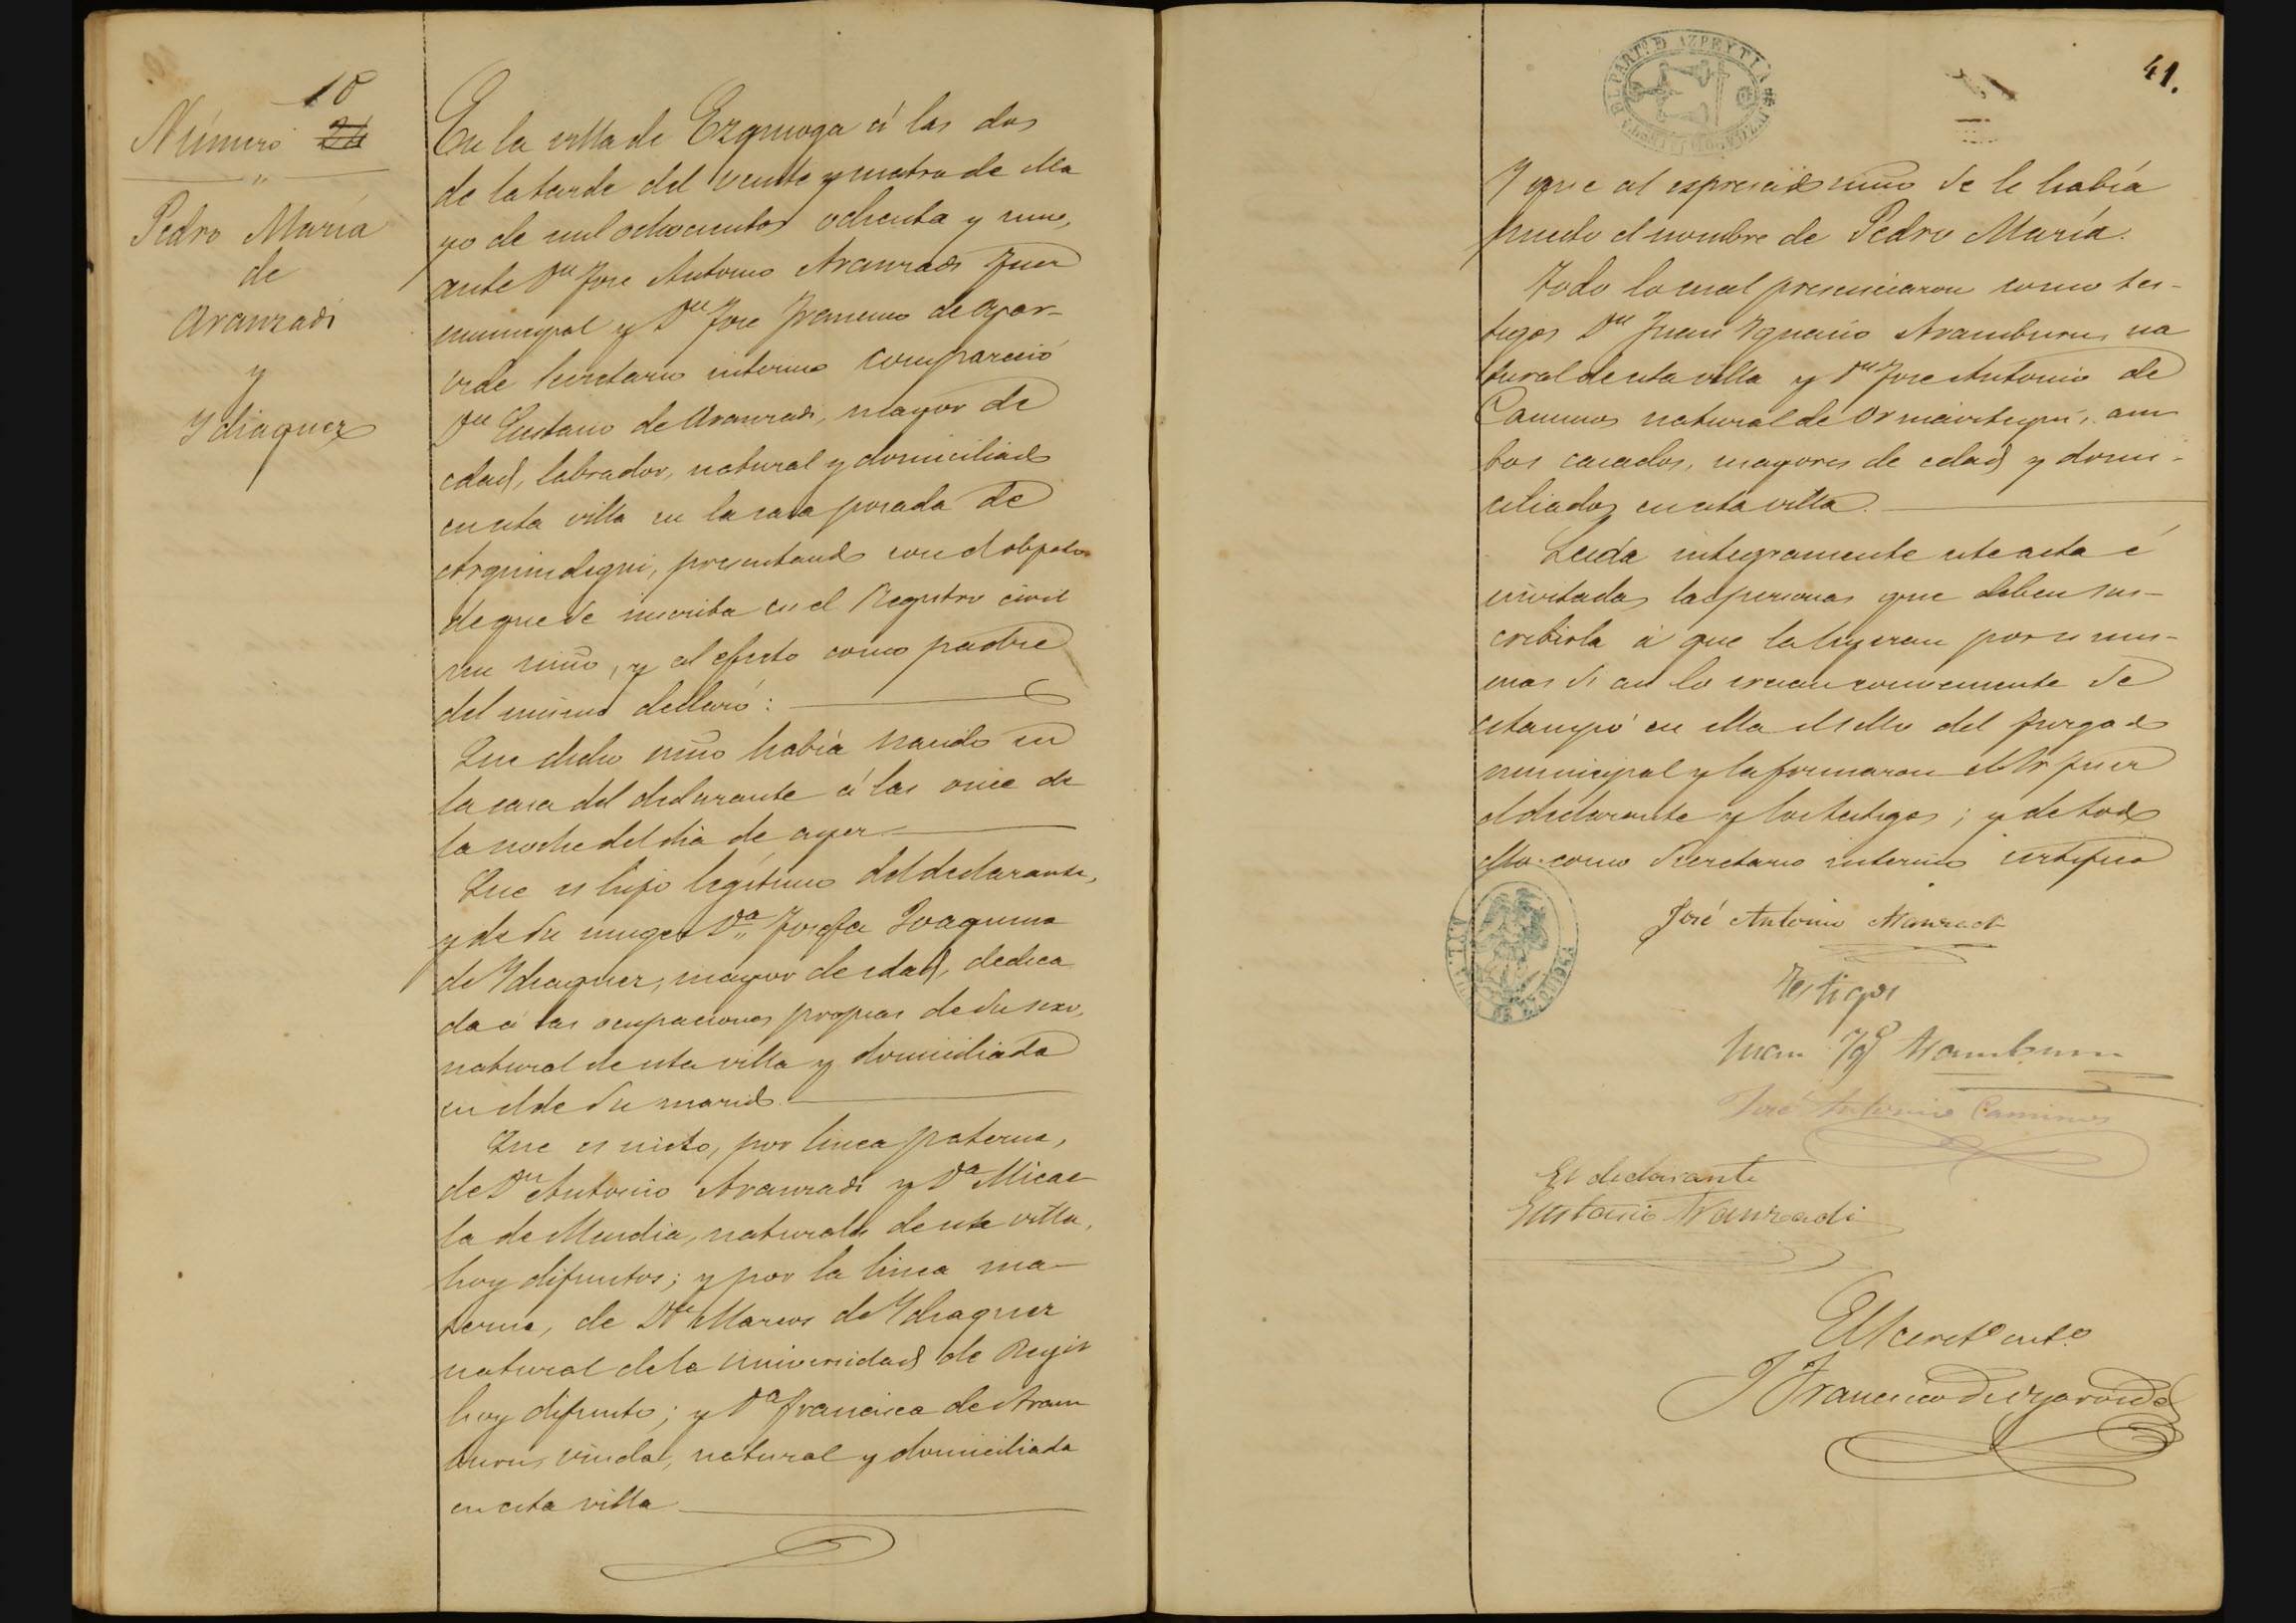 18
Número 24
"
Pedro María
de
Aranzadi
y
Ydiaquez
En la villa de Ezquioga á las dos
de la tarde del veinte y cuatro de Ma
yo de mil ochocientos ochenta y nueve,
ante Dn Jose Antonio Aranzadi Juez
municipal y Dn Jose Francisco de Ayar-
vide Secretario interino compareció
Dn Eustasio de Aranzadi, mayor de
edad, labrador, natural y domiciliado
en esta villa en la casa posada de
Arguindegui, presentando con el objeto
de que se inscriba en el Registro civil
un niño, y al efecto como padre
del mismo declaró:
Que dicho niño había nacido en
la casa del declarante á las once de
la noche del dia de ayer.
Que es hijo legítimo del declarante,
y de su muger Da Josefa Joaquina
de Ydiaquez, mayor de edad, dedica
da á las ocupaciones propias de su sexo,
natural de esta villa y domiciliada
en el de su marido.
Que es nieto, por linea paterna,
de Dn Antonio Aranzadi y Da Micae
la de Mendia, naturales de esta villa,
hoy difuntos; y por la linea ma-
terna, de Dn Marcos de Ydiaquez
natural de la universidad de Regil
hoy difunto; y Da Francisca de Aram
buru, viuda, natural y domiciliada
en esta villa
41.
PARTo. D AZPEYTIA
Y que al espresado niño se le había
puesto el nombre de Pedro María.
Todo lo cual presenciaron como tes-
tigos Dn Juan Ygnacio Aramburu, na
tural de esta villa y Dn Jose Antonio de
Caminos natural de Ormaiztegui, am
bos casados, mayores de edad y domi-
ciliados en esta villa.
Leida integramente este acta é
invitadas las personas que deben sus-
cribirla á que la leyeran por si mis-
mas si asi lo creian conveniente se
estampó en ella el sello del Juzgado
municipal y la firmaron el Sr Juez
el declarante y los testigos; y de todo
ello como Secretario interino certifico
José Antonio Aranzadi
Testigos
Juan Ygo Aramburu
José Antonio Caminos
El declarante
Eustasio Aranzadi
El Secreto into
J Francisco de Ayarvide